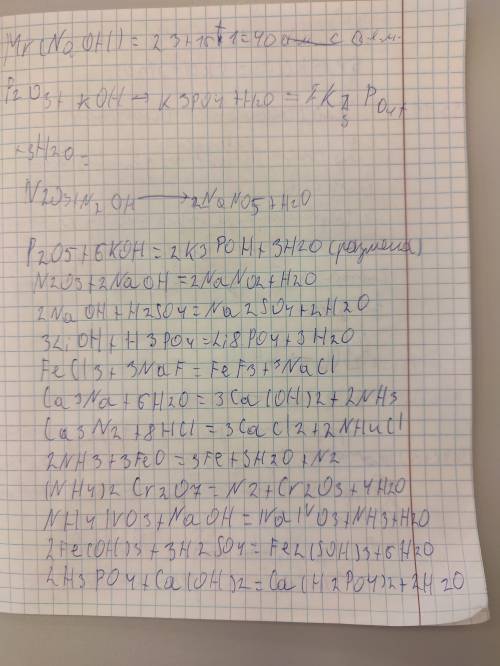 Mr(NaOH) = 23+16+1=40 а.е.м.
P2O3+ KOH → K3PO4+H2O =
+3H2O =
N2O3 → 2NaNO5+H2O
P2O5+6KOH=2K3POH+3H2O (размена)
N2O3+2NaOH=2NaNO2+H2O
2NaOH+H2SO4=Na2SO4+2H2O
3LiOH+H3PO4=Li8PO4+3H2O
FeCl3+3NaF=FeF3+3NaCl
Ca3Na+6H2O=3Ca(OH)2+2NH3
Ca3N2+8HCl=3CaCl2+2NH4Cl
2NH3+3FeO=3Fe+3H2O+N2
(NH4)2Cr2O7=N2+Cr2O3+4H2O
NH4NO3+NaOH=NaNO3+NH3+H2O
2Fe(OH)3+3H2SO4=Fe2(SOH)3+6H2O
2H3PO4+Ca(OH)2=Ca(H2PO4)2+2H2O